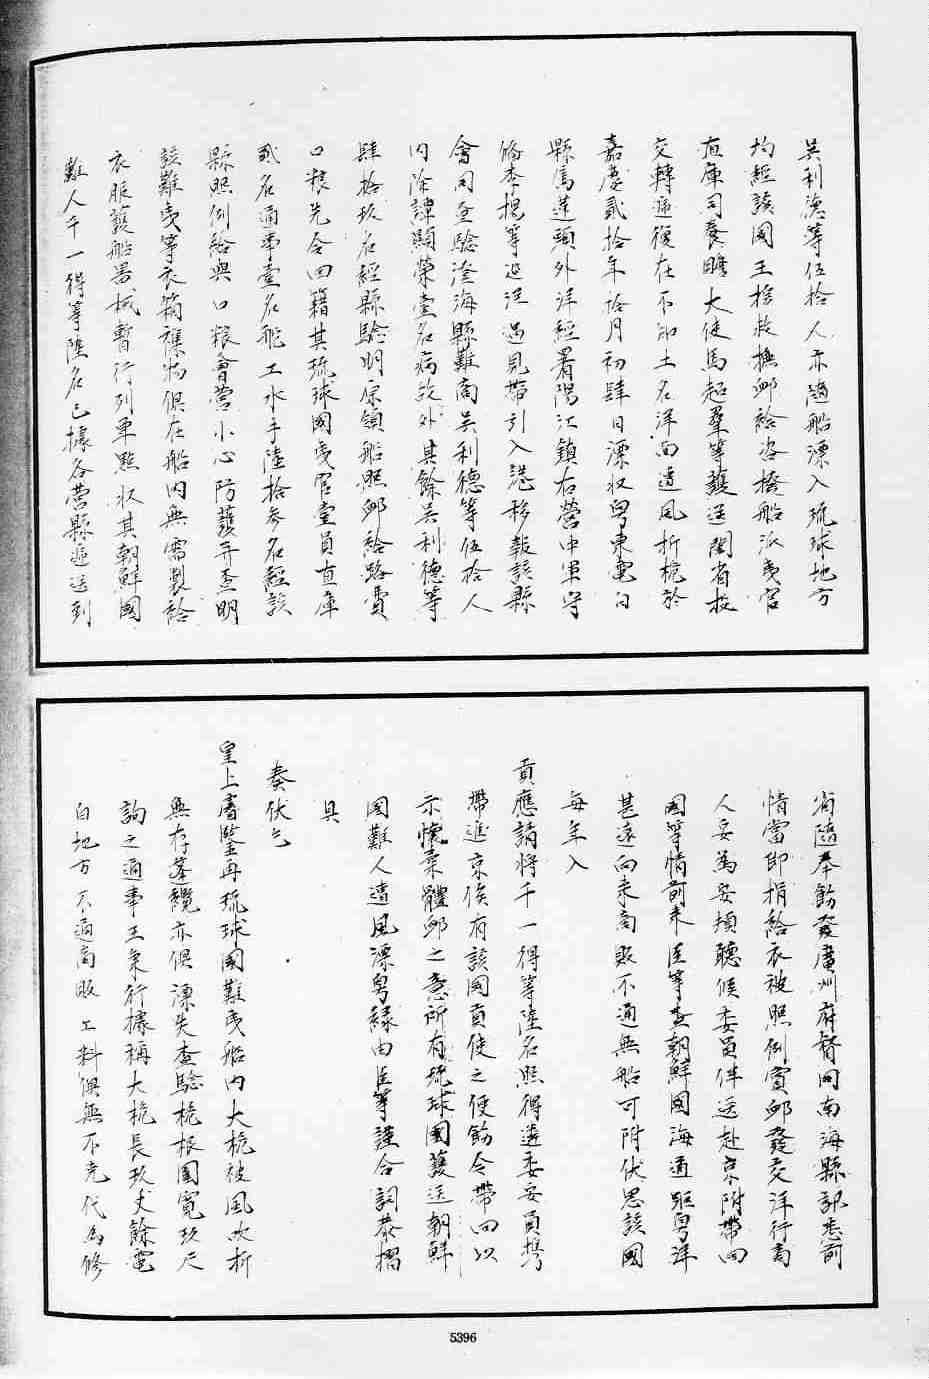 吳利德等伍拾人亦遭船漂入琉球地方
均經該國王拯救撫卹給咨撥船派夷官
直庫司養贍大使馬超羣等護送閩省投
交轉遞復在不知土名洋面遭風折桅於
嘉慶貳拾年拾月初肆日漂收粵東電白
縣馮蓮頭外洋經署陽江鎮右營中軍守
備李捷等巡洋遇見帶引入港移報該縣
會同查驗澄海縣難商吳利德等伍拾人
內除譚顯榮壹名病故外其餘吳利德等
肆拾玖名經縣驗明原領船照卹給路費
口糧先令回籍其琉球國夷官壹員直庫
貳名通事壹名舵工水手陸拾參名經該
縣照例給與口糧會營小心防護并查明
該難夷等衣箱雜物俱在船內無需製給
衣服護船器械暫行列單點收其朝鮮國
難人千一得等陸名已據各營縣遞送到
省隨奉飭發廣州府督同南海縣訊悉前
情當即捐給衣被照例賞卹發交洋行商
人妥為安頓聽候委員伴送赴京附帶回
國等情前來臣等查朝鮮國海道距粵洋
甚遠向來商販不通無船可附伏思該國
每年入
貢應請將千一得等陸名照得遴委妥員攜
帶進京俟有該國貢使之便飭令帶回以
示懷柔體卹之意所有琉球國護送朝鮮
國難人遭風漂粵緣由臣等謹合詞恭摺
具
奏伏乞
皇上睿鑒再琉球國難夷船內大桅被風水折
無存篷纜亦俱漂失查驗桅根圍寬玖尺
詢之通事王秉行據稱大桅長玖丈餘電
白地方不通商販工料俱無不克代為修
5396